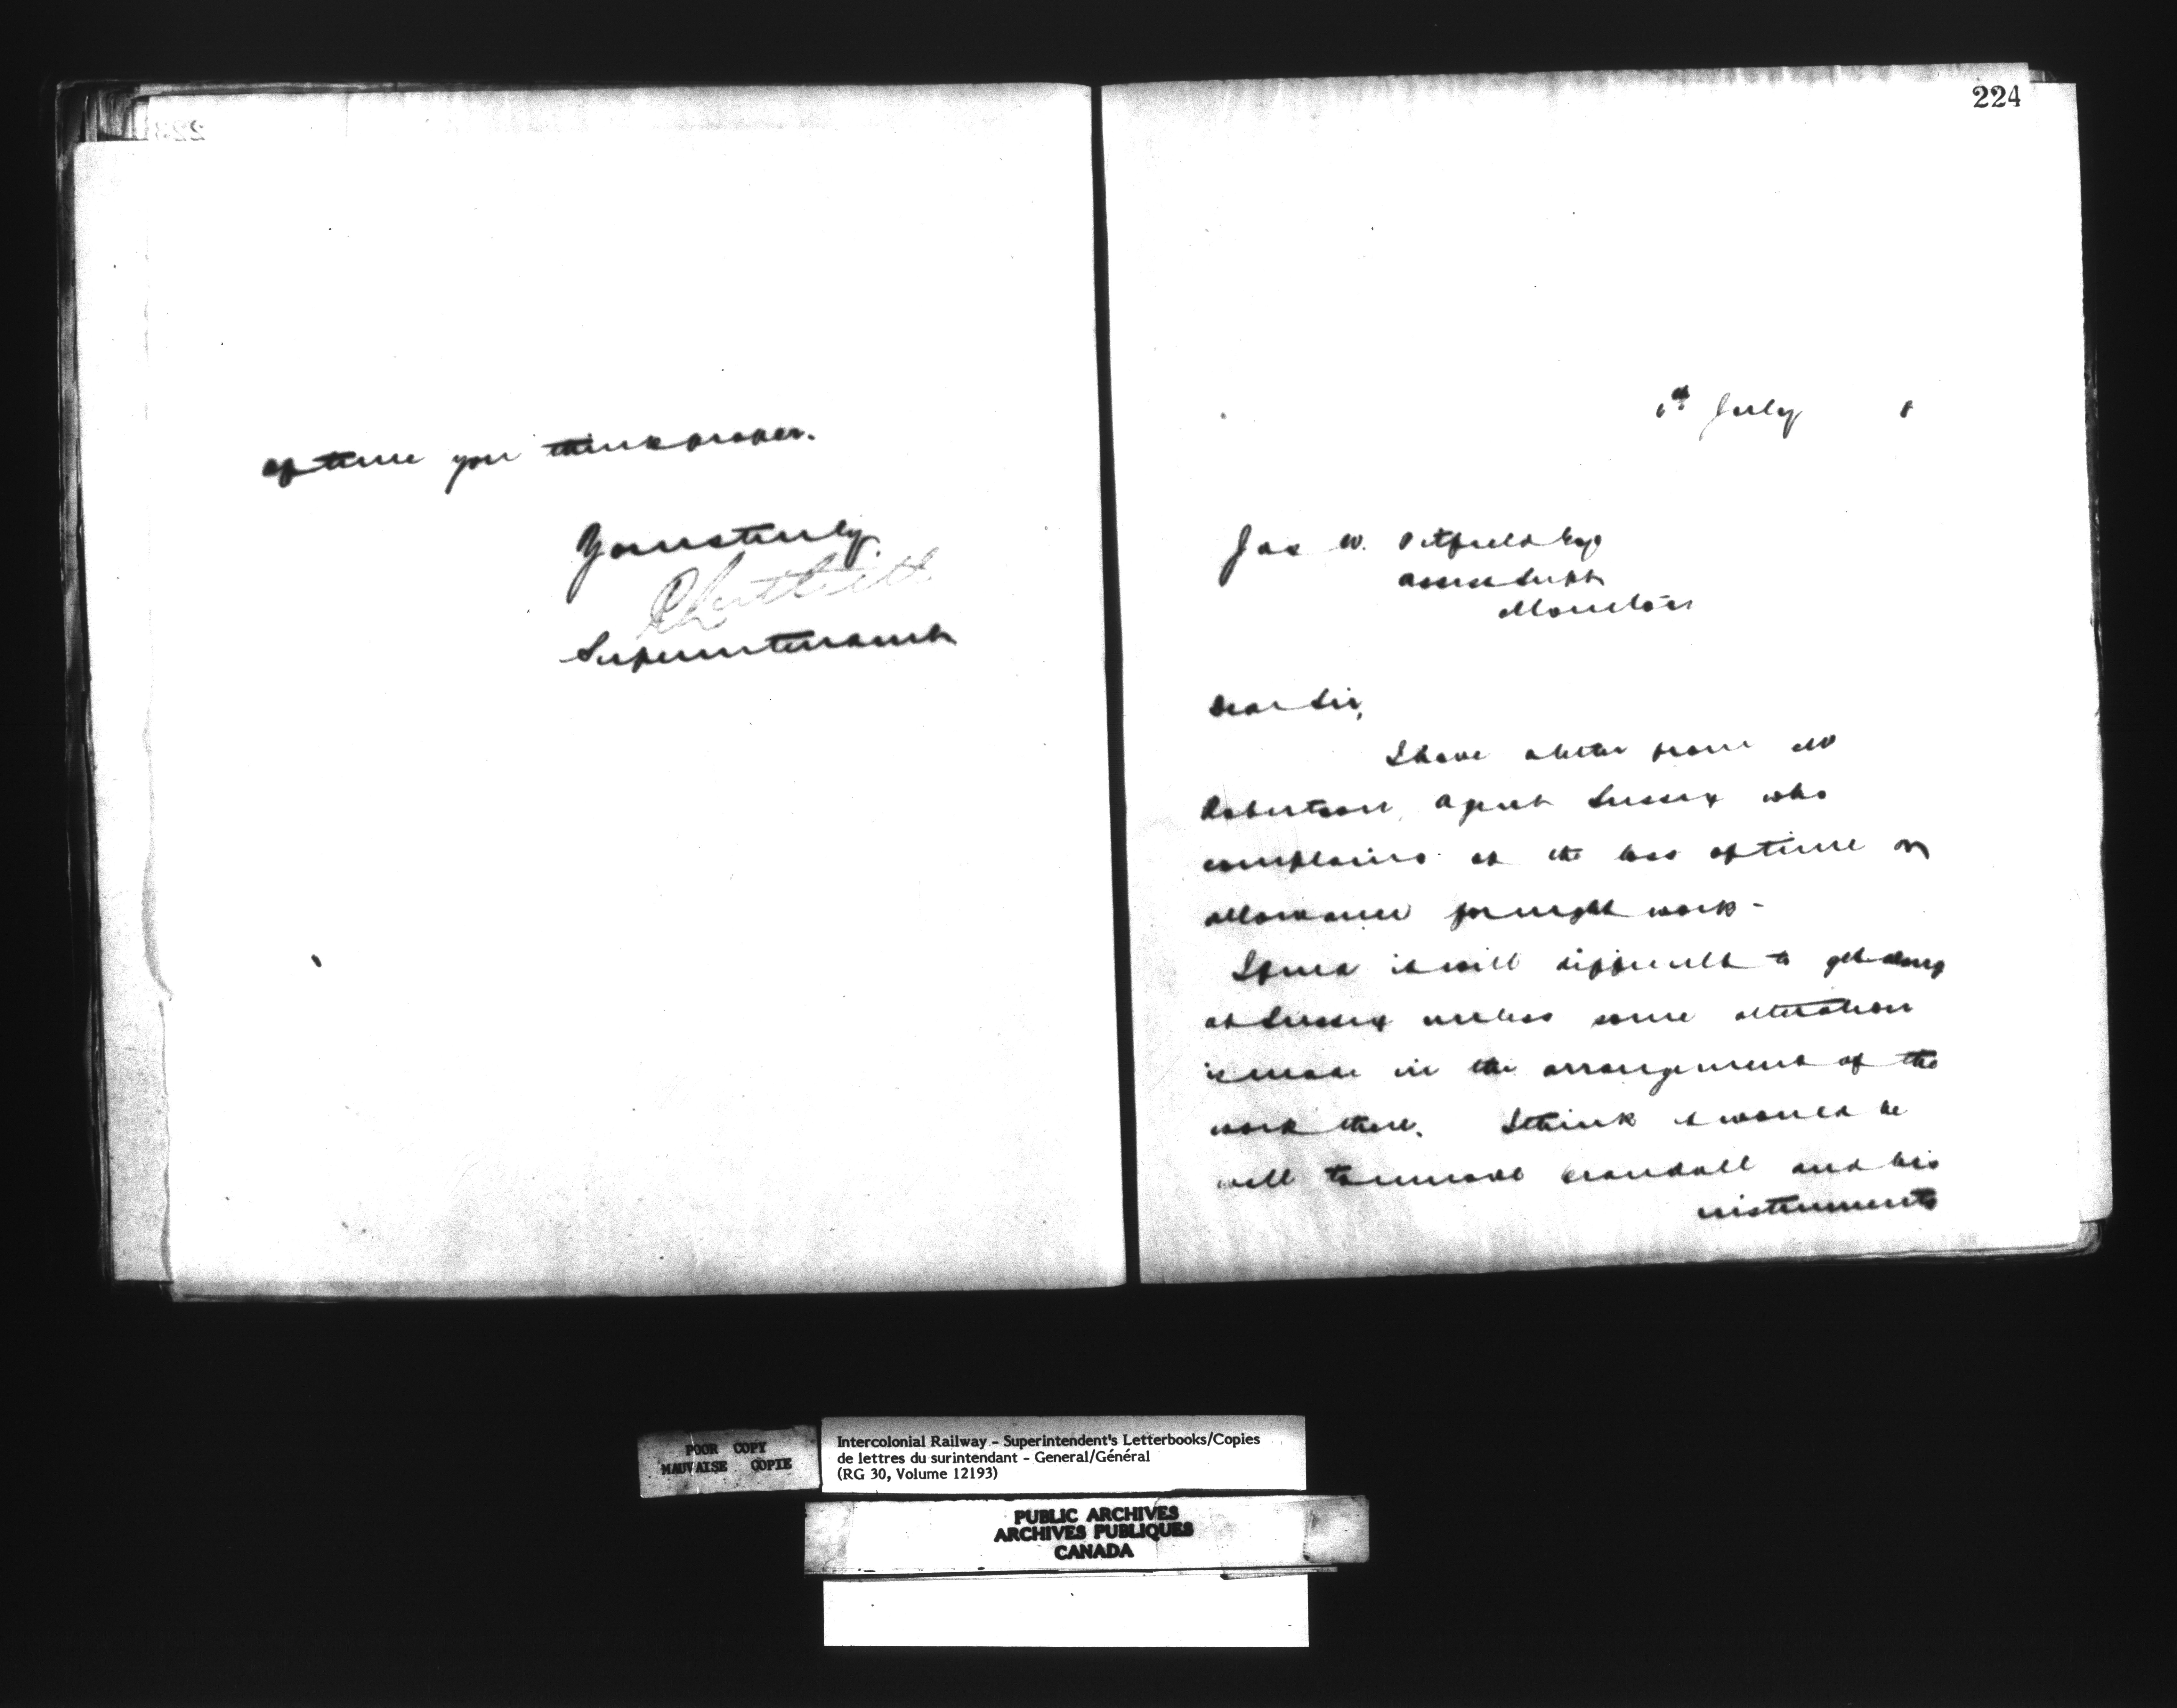 of time you think proper.
Yours truly
Superintendent
224
July
Jas W. Pitfield Esq
Assist Supt
Moncton
Dear Sir,
I have a letter from Mr
Robertson, Agent Sussex who
complains of the loss of time or
allowance for night work -
I find it will difficult to get along
at Sussex unless some alteration
is made in the arrangement of the
work there. I think it would be
well to remove Crandall and his
instruments
POOR COPY
MAUVAISE COPIE
Intercolonial Railway - Superintendent's Letterbooks/Copies
de lettres du surintendant - General/Général
(RG 30, Volume 12193)
PUBLIC ARCHIVES
ARCHIVES PUBLIQUES
CANADA